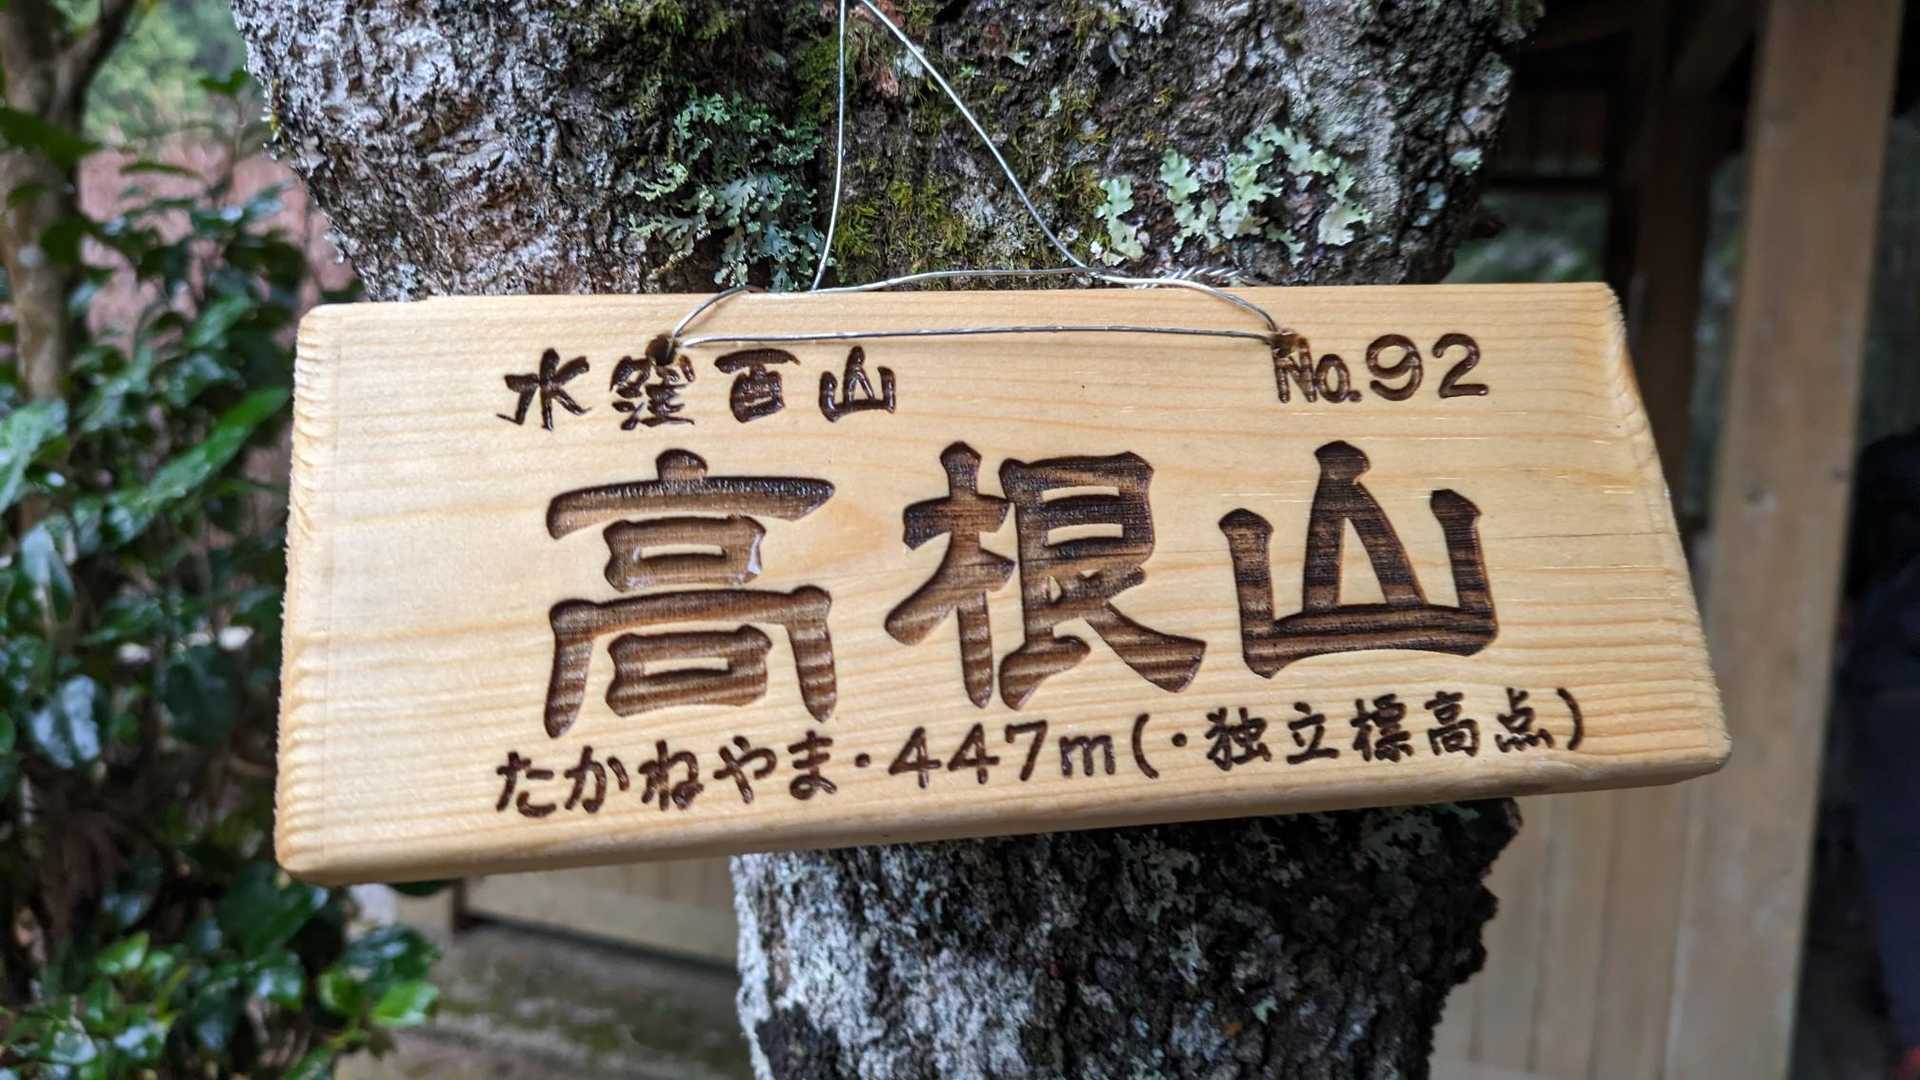 水窪百山 No.92
高根山
たかねやま・447m(・独立標高点)